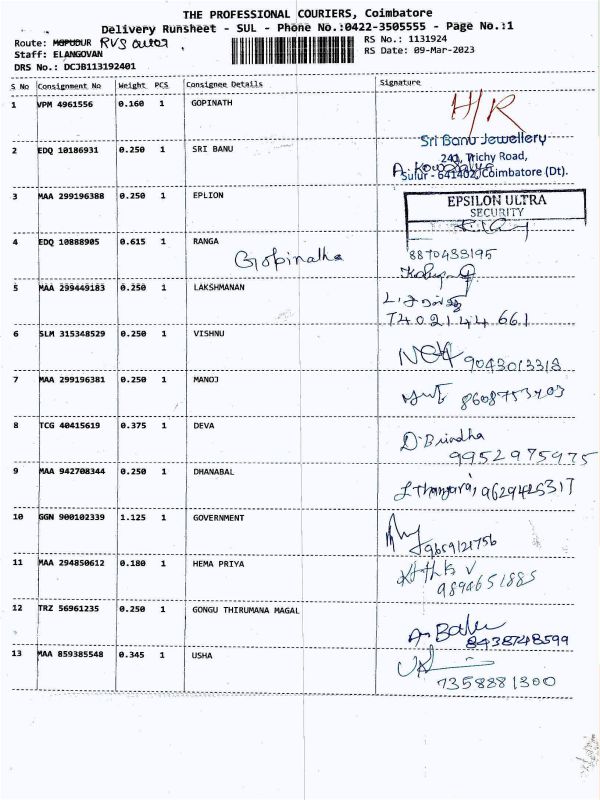 THE PROFESSIONAL COURIERS, Coimbatore
Delivery Runsheet - SUL - Phone No.:0422-3505555 - Page No.:1
Route: MOPUDUR RVS
RS No.: 1131924
Staff: ELANGOVAN
RS Date: 09-Mar-2023
DRS No.: DCJB113192401
S No Consignment No Weight PCS Consignee Details Signature
1 VPM 4961556 0.160 1 GOPINATH H/R
Sri Banu Jewellery
2 EDQ 10186931 0.250 1 SRI BANU 241, Trichy Road,
Sulur - 641402, Coimbatore (Dt).
3 MAA 299196388 0.250 1 EPLION EPSILON ULTRA
SECURITY
4 EDQ 10888905 0.615 1 RANGA 8870433195
Gopinatha
5 MAA 299449183 0.250 1 LAKSHMANAN
7402144661
6 SLM 315348529 0.250 1 VISHNU 9043013318
7 MAA 299196381 0.250 1 MANOJ 8608753403
8 TCG 40415619 0.375 1 DEVA D. Brindha
9952975975
9 MAA 942708344 0.250 1 DHANABAL L Thangaraj 9629425317
10 GGN 900102339 1.125 1 GOVERNMENT
9659121756
11 MAA 294850612 0.180 1 HEMA PRIYA
9894651885
12 TRZ 56961235 0.250 1 GONGU THIRUMANA MAGAL A. Babu
8438748599
13 MAA 859385548 0.345 1 USHA
7358881300